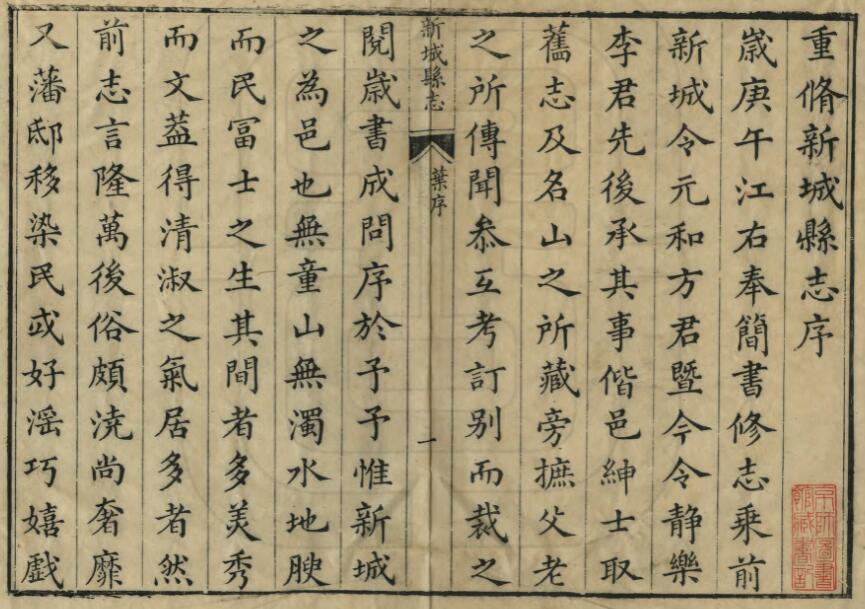 重脩新城縣志序
嵗庚午江右奉簡書修志乘前
新城令元和方君暨今令靜樂
李君先後承其事偕邑紳士取
舊志及名山之所藏旁摭父老
之所傳聞叅互考訂别而裁之
新城縣志
葉序
一
閱嵗書成問序於予予惟新城
之為邑也無童山無濁水地腴
而民冨士之生其間者多美秀
而文葢得清淑之氣居多者然
前志言隆萬後俗頗澆尚奢靡
又藩邸移染民或好滛巧嬉戱
京師圖書
館藏書記